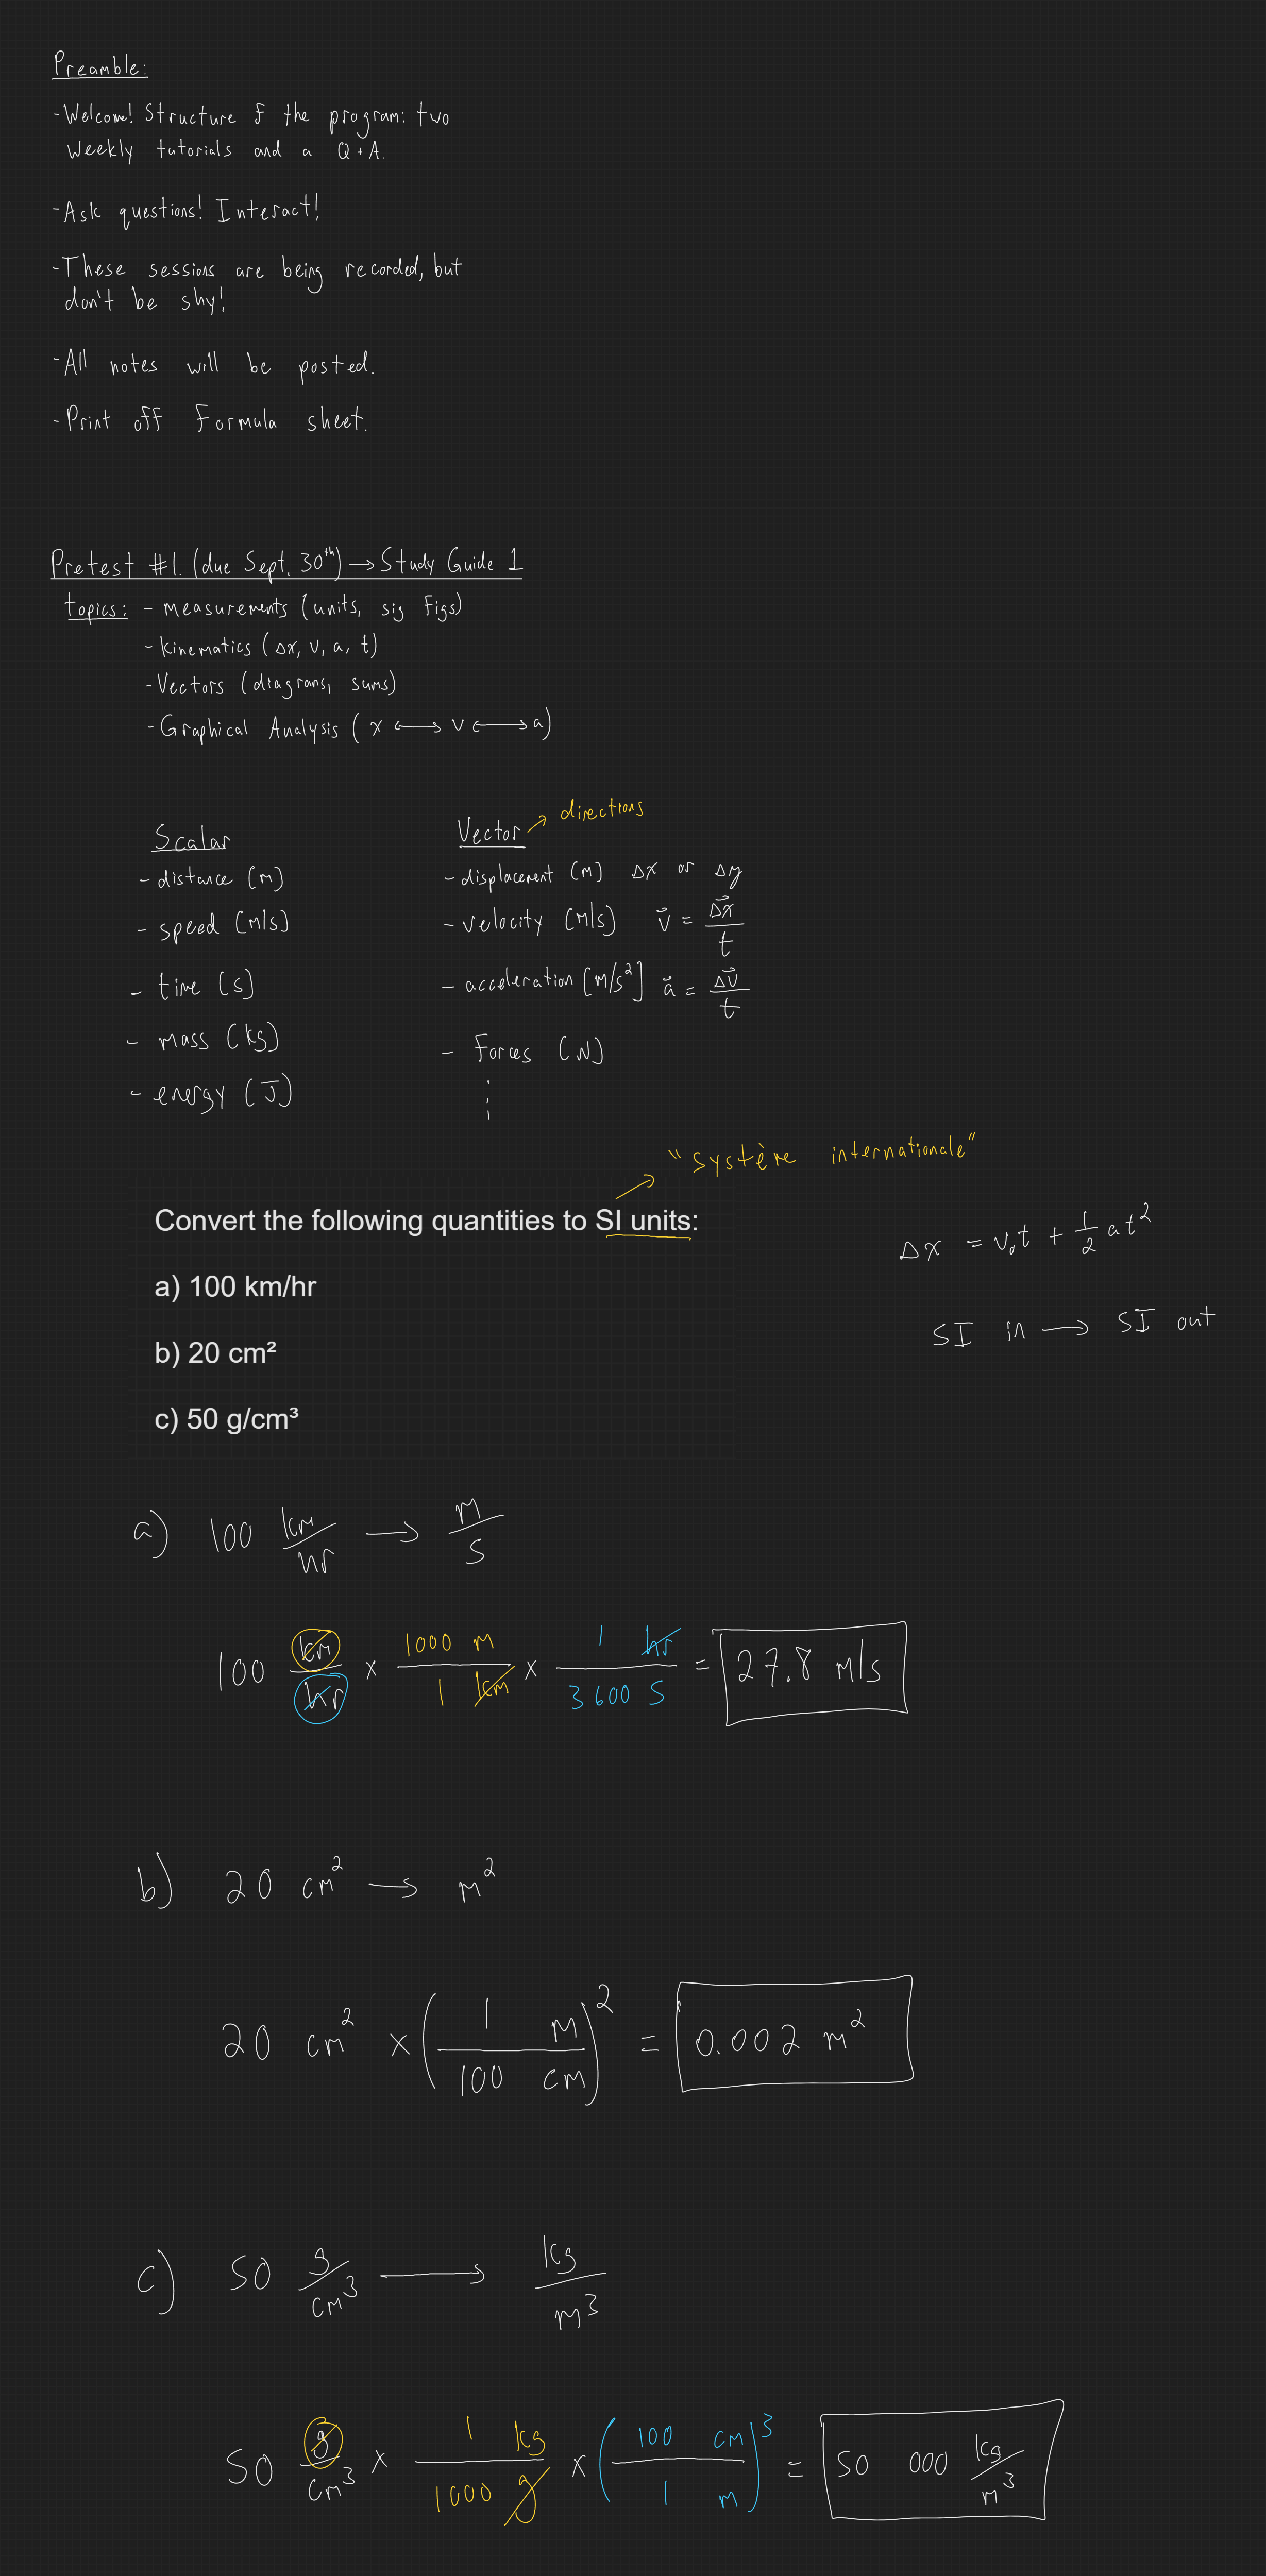 Preamble:
-Welcome! Structure of the program: two
Weekly tutorials and a Q+A.
-Ask questions! Interact!
-These sessions are being recorded, but
don't be shy!
-All notes will be posted.
-Print off Formula sheet.
Pretest #1. (due Sept. 30th) → Study Guide 1
topics: - measurements (units, sig figs)
- kinematics (Δx, v, a, t)
- Vectors (diagrams, sums)
- Graphical Analysis (x ⟷ v ⟷ a)
Scalar
- distance (m)
- speed (m/s)
- time (s)
- mass (kg)
- energy (J)
Vector → directions
- displacement (m) Δx or Δy
- velocity (m/s) v⃗ = Δx⃗ / t
- acceleration [m/s²] a⃗ = Δv⃗ / t
- Forces (N)
⋮
→ "système internationale"
Convert the following quantities to SI units:
a) 100 km/hr
b) 20 cm²
c) 50 g/cm³
Δx = v₀t + 1/2 at²
SI in → SI out
a) 100 km/hr → m/s
100 km/hr × 1000 m / 1 km × 1 hr / 3600 s = 27.8 m/s
b) 20 cm² → m²
20 cm² × (1 m / 100 cm)² = 0.002 m²
c) 50 g/cm³ → kg/m³
50 g/cm³ × 1 kg / 1000 g × (100 cm / 1 m)³ = 50 000 kg/m³